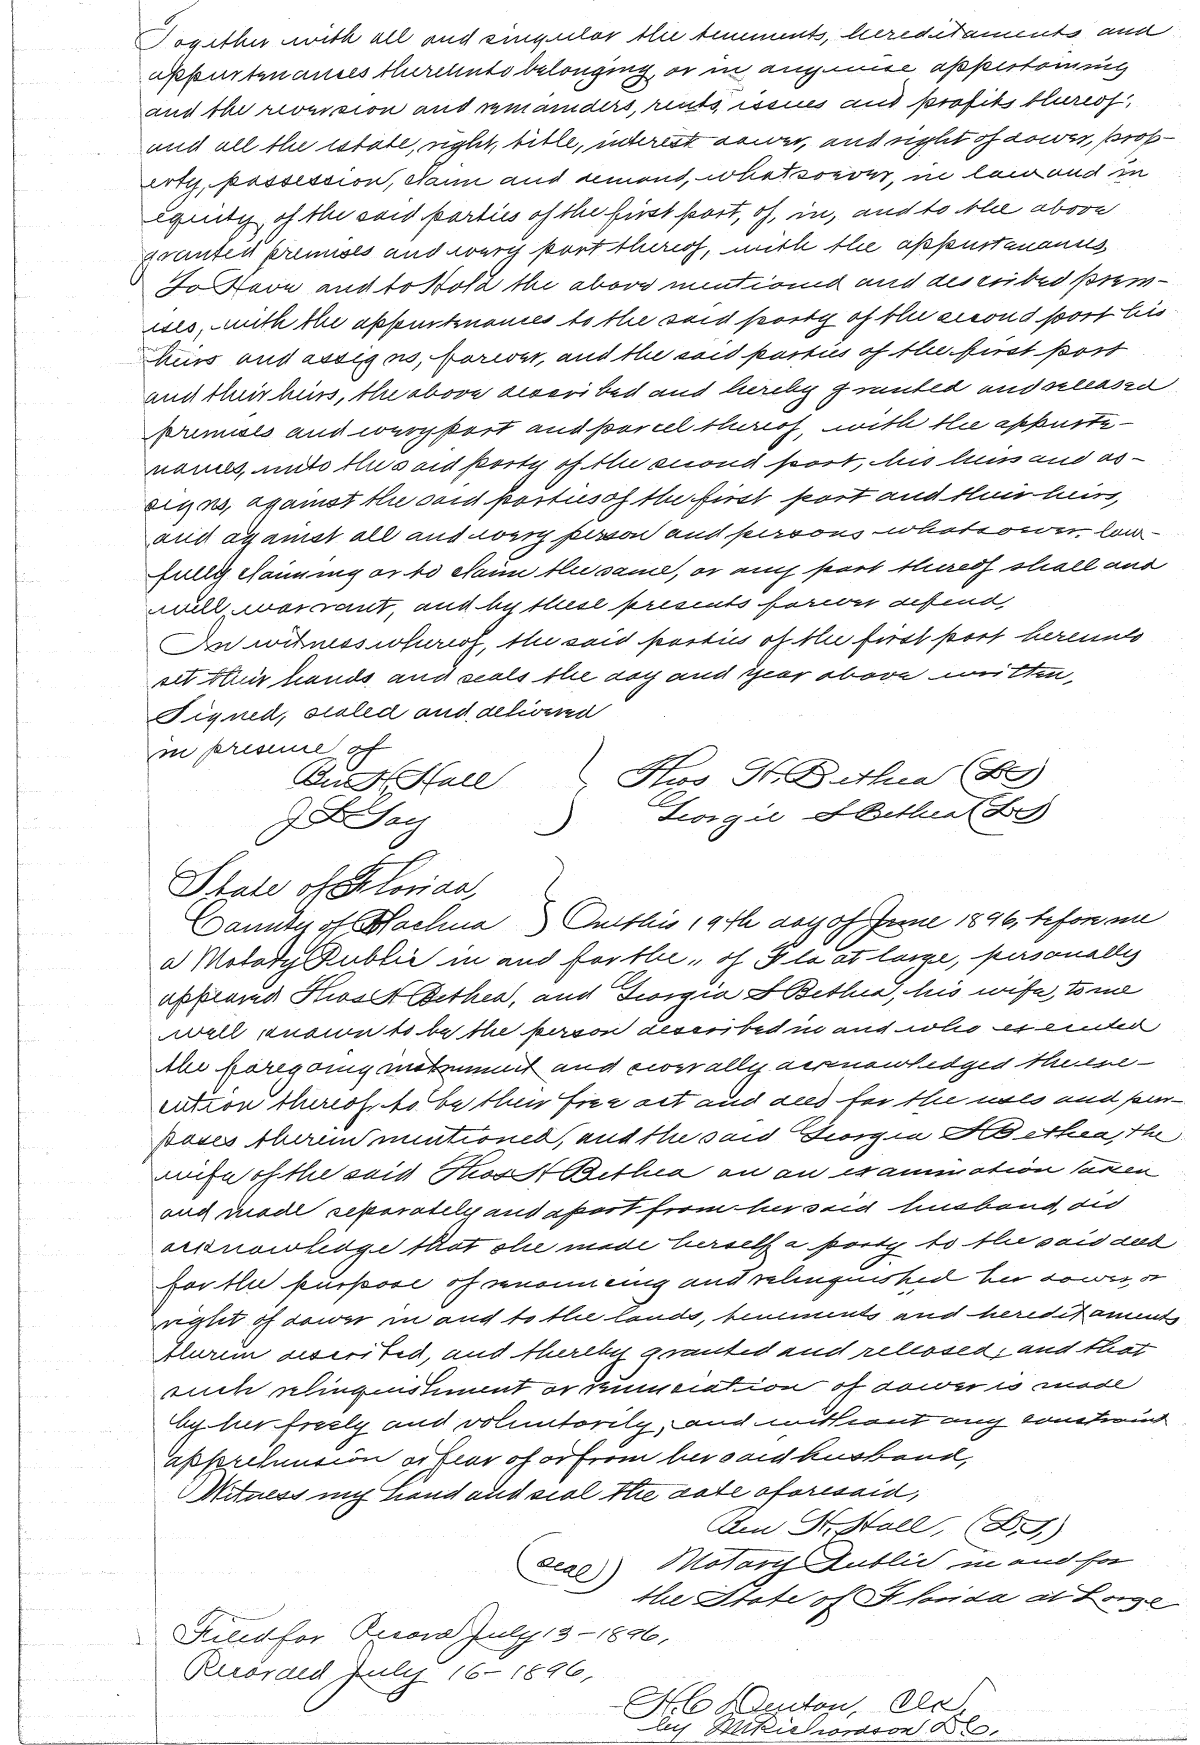 Together with all and singular the tenements, hereditaments and
appurtenances thereunto belonging, or in anywise appertaining
and the reversion and remainders, rents, issues and profits thereof;
and all the estate, right, title, interest dower, and right of dower, prop-
erty, possession, claim and demand, whatsoever, in law and in
equity, of the said parties of the first part, of, in, and to the above
granted premises and every part thereof, with the appurtenances,
To Have and to Hold the above mentioned and described prem-
ises, with the appurtenances to the said party of the second part his
heirs and assigns, forever, and the said parties of the first part
and their heirs, the above described and hereby granted and released
premises and every part and parcel thereof, with the appurte-
nances, unto the said party of the second part, his heirs and as-
signs, against the said parties of the first part and their heirs,
and against all and every person and persons whatsoever, law-
fully claiming or to claim the same, or any part thereof shall and
will, warrant, and by these presents forever defend,
In witness whereof, the said parties of the first part hereunto
set their hands and seals the day and year above written,
Signed, sealed and delivered
in presence of
Ben H. Hall } Thos H. Bethea (LS)
J L Gay } Georgie S Bethea (LS)
State of Florida,
County of Alachua } On this 19th day of June 1896, before me
a Notary Public in and for the „ of Fla at large, personally
appeared Thos H Bethea, and Georgia S Bethea, his wife, to me
well known to be the person described in and who executed
the foregoing instrument and severally acknowledged the exe-
cution thereof, to be their free act and deed for the uses and pur-
poses therein mentioned, and the said Georgia S Bethea, the
wife of the said Thos H Bethea on an examination taken
and made separately and apart from her said husband, did
acknowledge that she made herself a party to the said deed
for the purpose of renouncing and relinquished her dower, or
right of dower in and to the lands, tenements and hereditaments
therein described, and thereby granted and released, and that
such relinquishment or renunciation of dower is made
by her freely and voluntarily, and without any constraint
apprehension or fear of or from her said husband,
Witness my hand and seal the date aforesaid,
Ben H. Hall, (L.S.)
(seal) Notary Public in and for
the State of Florida at Large
Filed for Record July 13-1896,
Recorded July 16-1896,
H. C Denton, Clk,
by M Richardson D C.